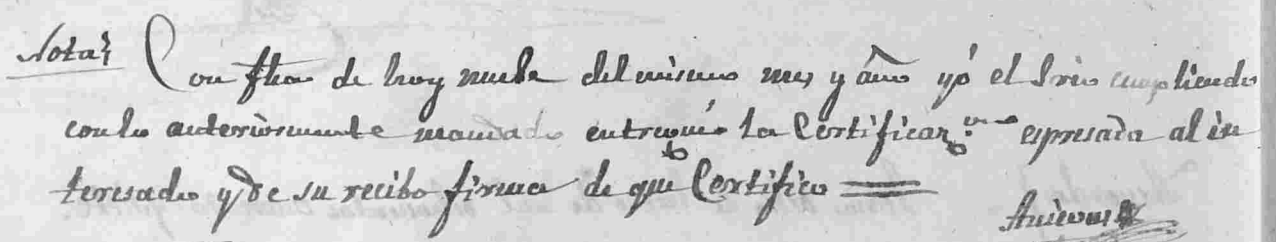 Nota
Con fha de hoy nuebe del mismo mes y año yó el Srio cumpliendo
con lo anteriormente mandado entregué la Certificaz.on espresada al in
teresado y de su recibo firma de que Certifico =